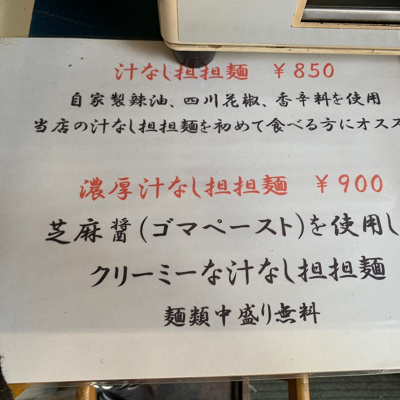 汁なし担担麺 ¥850
自家製辣油、四川花椒、香辛料を使用
当店の汁なし担担麺を初めて食べる方にオスス
濃厚汁なし担担麺 ¥900
芝麻醤(ゴマペースト)を使用し
クリーミーな汁なし担担麺
麺類中盛り無料